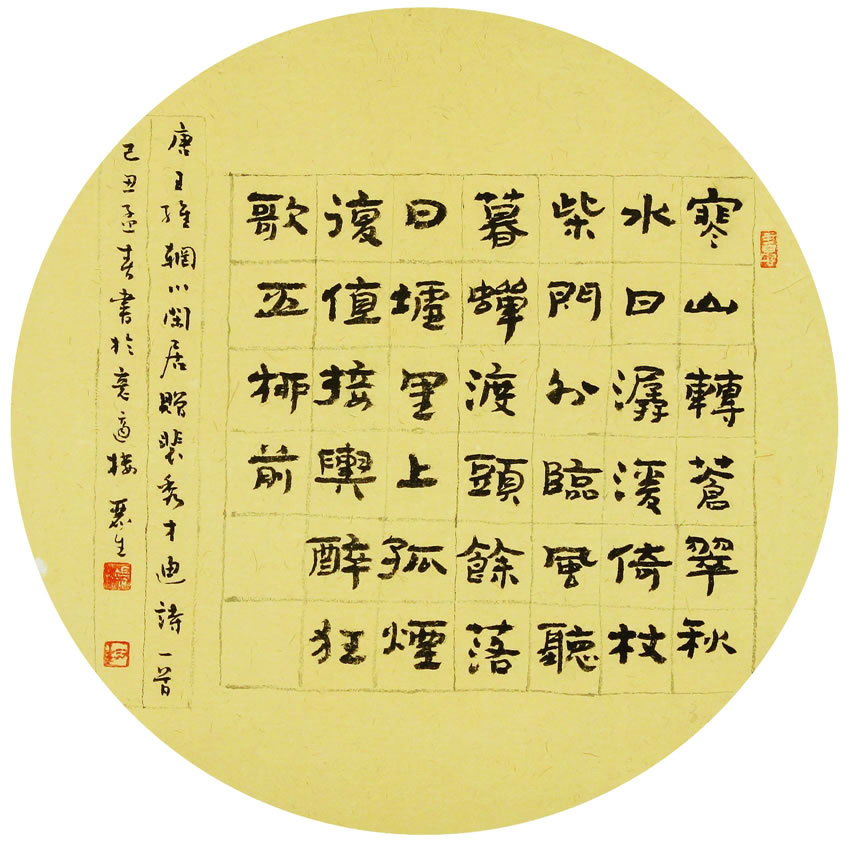 寒山轉蒼翠秋
水日潺湲倚杖
柴門外臨風聽
暮蟬渡頭餘落
日墟里上孤煙
復值接輿醉狂
歌五柳前
唐王維輞川閑居贈裴秀才迪詩一首
己丑孟春書於意適樓